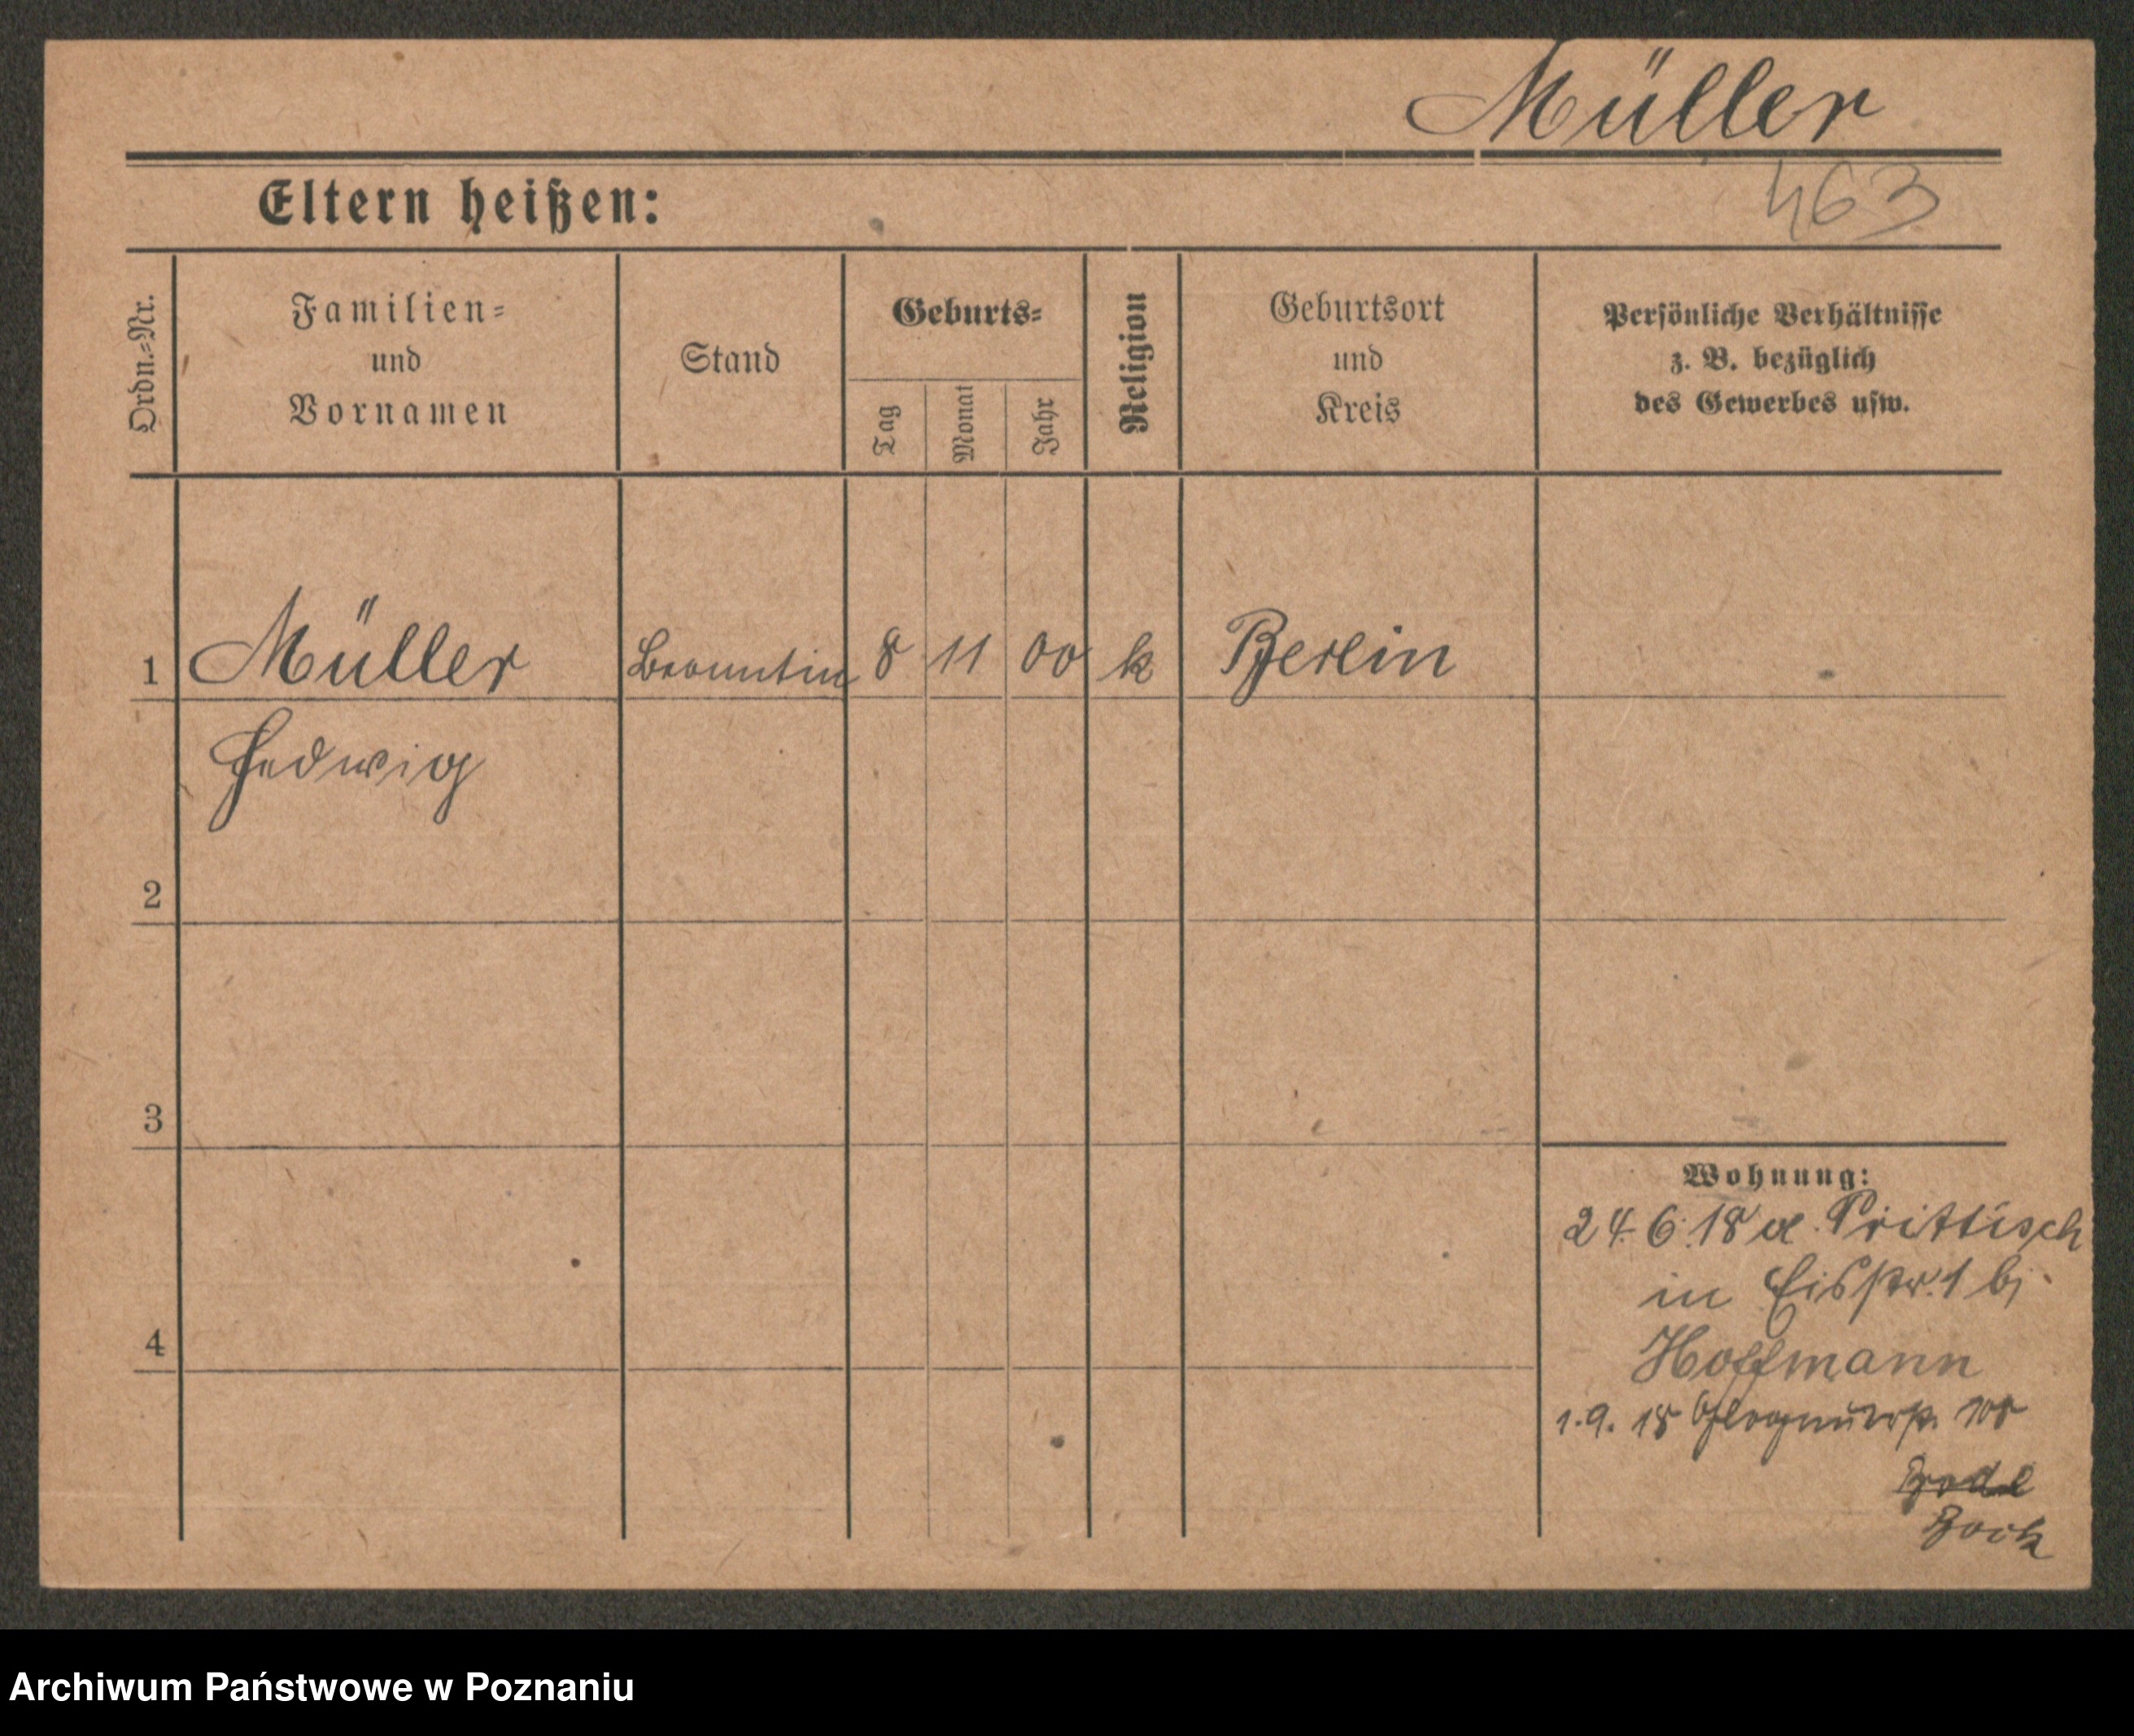 Müller
Eltern heißen:
463
Ordn.-Nr.
Familien-
und
Vornamen
Stand
Geburts-
Tag
Monat
Jahr
Religion
Geburtsort
und
Kreis
Persönliche Verhältnisse
z. B. bezüglich
des Gewerbes usw.
1 Müller Beamtin 8 11 00 k Berlin
Hedwig
2
3
4
Wohnung:
24.6.18 a. Prittisch
in Eisstr. 1 bj
Hoffmann
1.9.18
Archiwum Państwowe w Poznaniu